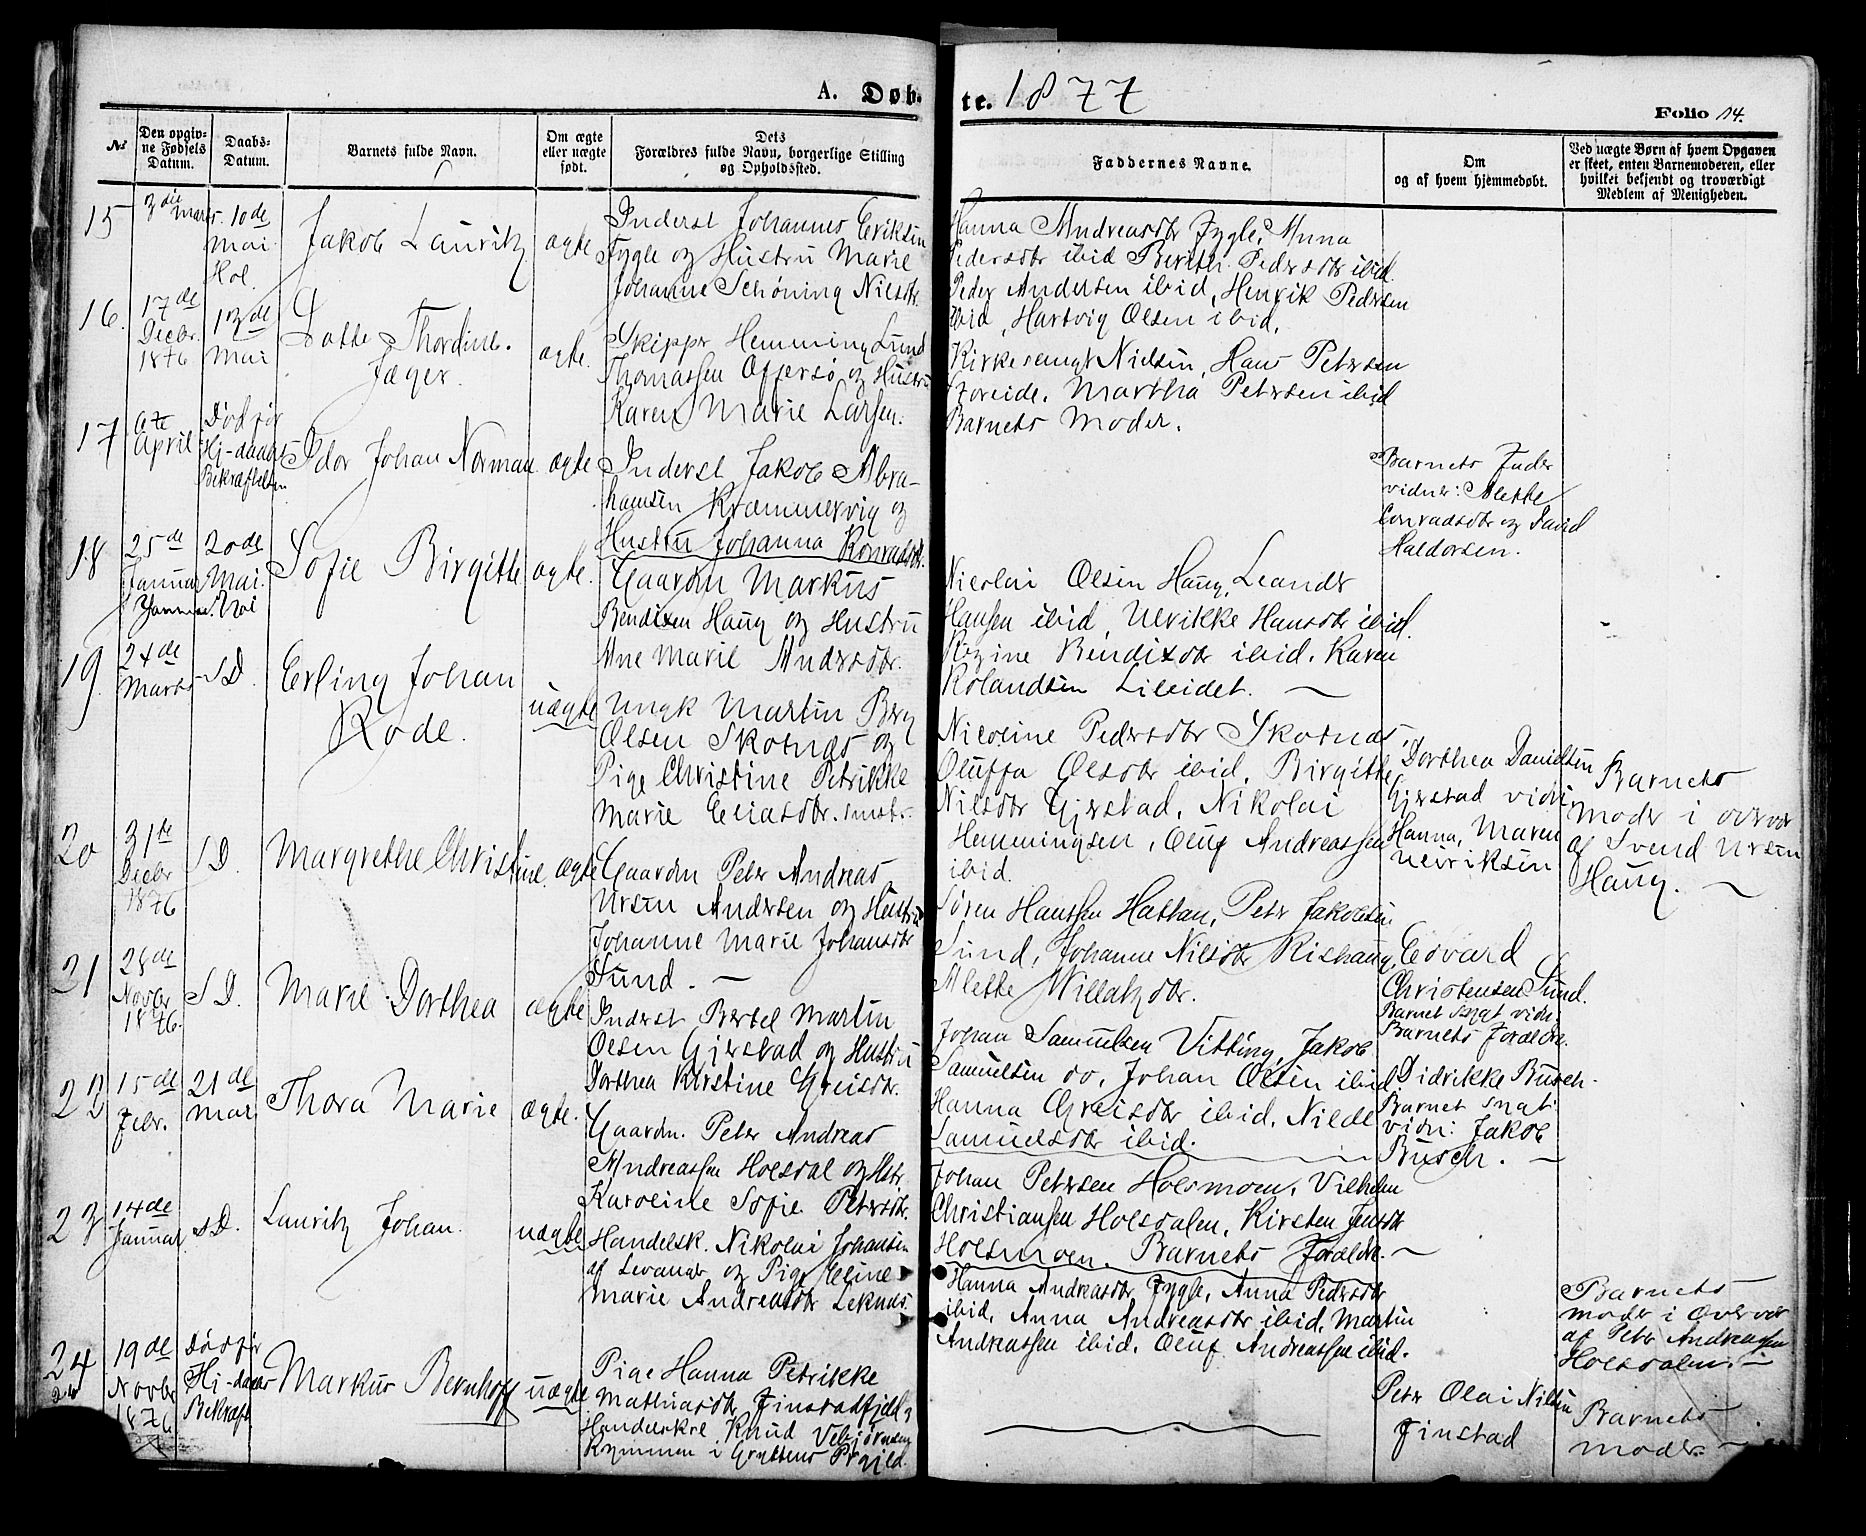 A. Døb-
te. 1877
Folio 14.
№
Den opgiv-
ne Fødsels
Datum.
Daabs-
Datum.
Barnets fulde Navn.
Om ægte
eller uægte
født.
Dets
Forældres fulde Navn, borgerlige Stilling
og Opholdssted.
Faddernes Navne.
Om
og af hvem hjemmedøbt.
Ved uægte Børn af hvem Opgaven
er skeet, enten Barnemoderen, eller
hvilket bekjendt og troværdigt
Medlem af Menigheden.
15
3die Marts
10de
Mai
Hol.
Jakob Lauritz
ægte
Inderst Johannes Eriksen
Fygle og Hustru Marie
Johanne Schöning Nilsdtr.
Hanna Andreasdtr Fygle, Anna
Pedersdtr ibid Bereth Pedersdtr ibid.
Peder Andersen ibid, Henrik Pedersen
ibid, Hartvig Olsen ibid.
16.
17de
Decbr.
1876
13de
Mai
Lotte Thordine
Jæger.
ægte.
Skipper Hemming Lund
Thomassen Offersø og Hustru
Karen Marie Larsen.
Kirkesangr Nielsen, Hans Petersen
Storeide, Martha Petersen ibid
Barnets Moder.
17
April
Død før
Hj-daabs
Bekræftelsen
Idor Johan Norman
ægte
Inderst Jakob Abra-
hamsen Kræmmervig og
Hustru Johanna Konradsdtr.
Barnets Fader
vidner: Alette
Conradsdtr og David
Haldorsen.
18
25de
Januar
20de
Mai.
Hol
Sofie Birgitte
ægte.
Gaardm Markus
Bendixen Haug og Hustru
Ane Marie Andersdtr.
Nicolai Olsen Haug, Leander
Hansen ibid, Ulrikke Hansdtr ibid.
Regine Bendixdtr ibid. Karen
Rolandsen Lileidet.
19
24de
Marts
S D.
Erling Johan
Rode.
uægte
Ungk Martin Berg
Olsen Skotnæs og
Pige Christine Petrikke
Marie Eliasdtr. smst.
Nicoline Pedersdtr Skotnæs,
Oluffa Olsdtr ibid, Birgitte
Nilsdtr Gjerstad, Nikolai
Hemmingsen, Oluf Andreassen
ibid.
Dorthea Davidsen
Gjerstad vidn:
Hanna, Maren
Ulrriksen
Barnets
Moder i overvær
af Svend Ursin
Haug.
20
31te
Decbr
1876
S D.
Margrethe Christine.
ægte
Gaardm Peter Andreas
Ursin Andersen og Hustru
Johanne Marie Johansdtr
Sund.
Søren Hansen Hattan, Peter Jakobsen
Sund, Johanne Nilsdtr Rishaug,
Alette Willatzdtr.
Edvard
Christensen Sund.
Barnet svagt vidn:
Barnets Forældre.
21
28de
Novbr
1876.
S D.
Marie Dorthea
ægte
Inderst Bertel Martin
Olsen Gjerstad og Hustru
Dorthea Kirstine Greisdtr.
Johan Samuelsen Vitting, Jakob
Samuelsen do, Johan Olsen ibid
Hanna Greisdtr ibid, Nilde
Samuelsdtr ibid.
Didrikke Busch.
Barnet svagt
vidn: Jakob
Busch.
22
15de
Febr.
21de
Mai
Thora Marie
ægte.
Gaardm. Peter Andreas
Andreassen Holsdal og Hstr.
Karoline Sofie Petersdtr.
Johan Petersen Holsmoen, Vilhelm
Christiansen Holsdalen, Kirsten Jensdtr
Holsmoen. Barnets Forældre.
23
14de
Januar
S D.
Lauritz Johan.
uægte
Handelsk. Nikolai Johansen
af Levanger og Pige Eline
Marie Andreasdtr Leknæs.
Hanna Andreasdtr Fygle, Anna Pedersdtr
ibid, Anna Andreasdtr ibid, Martin
Andreassen ibid. Oluf Andreassen ibid.
Barnets
Moder i Overvær
af Peter Andreassen
Holsdalen.
24
19de
Novbr
1876
Død før
Hj-daabs
Bekræft
Markus Bernhoff
uægte
Pige Hanna Petrikke
Mathiasdtr Finstadfjeld,
Handelskrl Knud
i Gryttens Prgjld.
Peter Olai Nilsen
Finstad
Barnets
Moder.